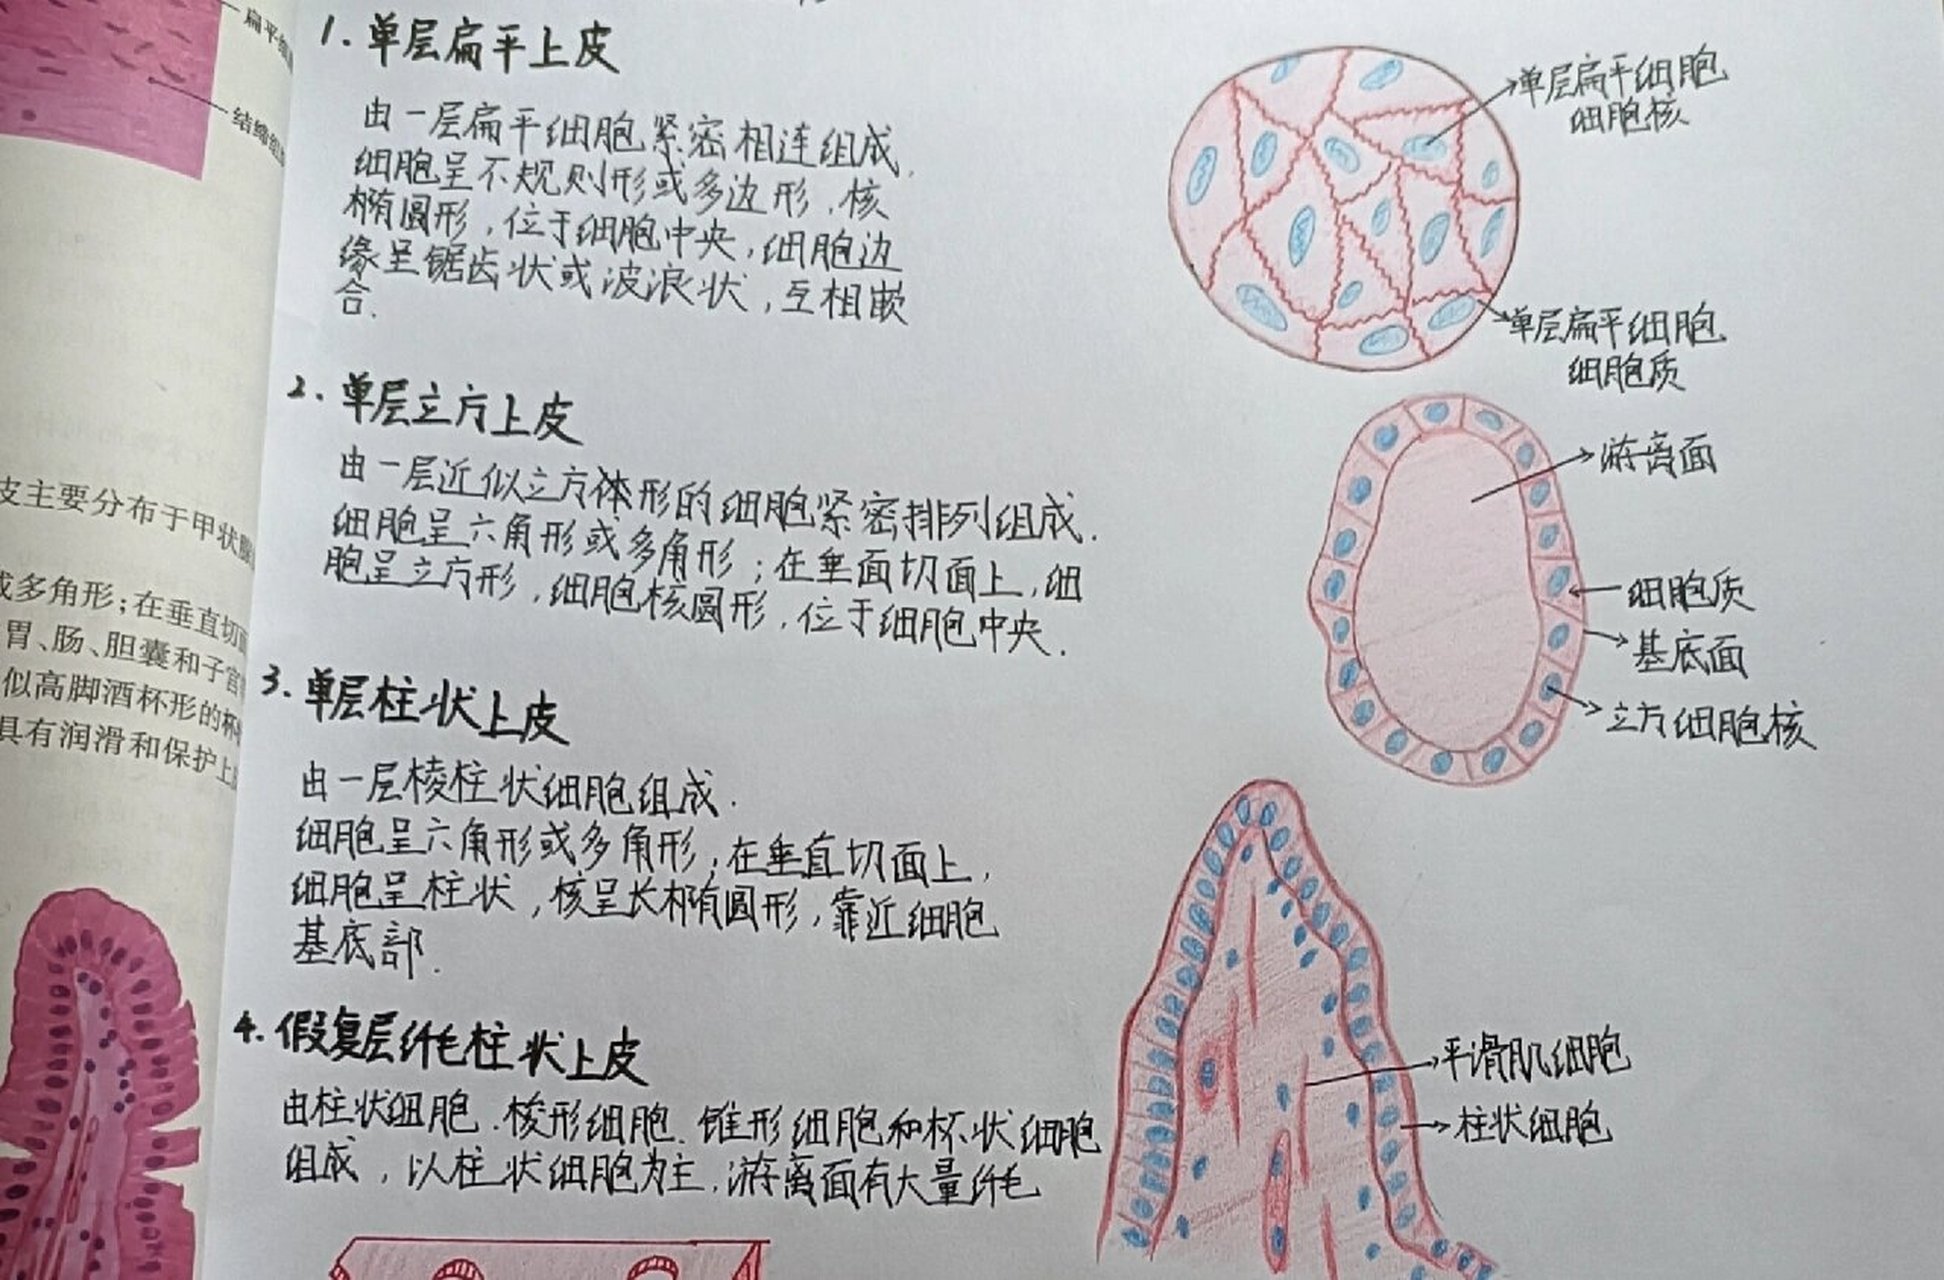 扁平细
结缔组
皮主要分布于甲状腺
或多角形；在垂直切面
胃、肠、胆囊和子宫
似高脚酒杯形的杯
具有润滑和保护上
1. 单层扁平上皮
由一层扁平细胞紧密相连组成.
细胞呈不规则形或多边形，核
椭圆形，位于细胞中央，细胞边
缘呈锯齿状或波浪状，互相嵌
合.
单层扁平细胞
细胞核
单层扁平细胞
细胞质
2. 单层立方上皮
由一层近似立方体形的细胞紧密排列组成.
细胞呈六角形或多角形；在垂面切面上，细
胞呈立方形，细胞核圆形，位于细胞中央.
游离面
细胞质
基底面
立方细胞核
3. 单层柱状上皮
由一层棱柱状细胞组成.
细胞呈六角形或多角形，在垂直切面上，
细胞呈柱状，核呈长椭圆形，靠近细胞
基底部.
平滑肌细胞
柱状细胞
4. 假复层纤毛柱状上皮
由柱状细胞、梭形细胞、锥形细胞和杯状细胞
组成，以柱状细胞为主，游离面有大量纤毛